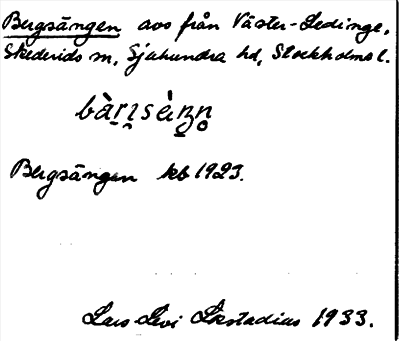 Bergsängen avs från Väster-Ledinge,
Skederids sn, Sjuhundra hd, Stockholms l.
Bergsängen kb 1923.
Lars Levi Læstadius 1933.